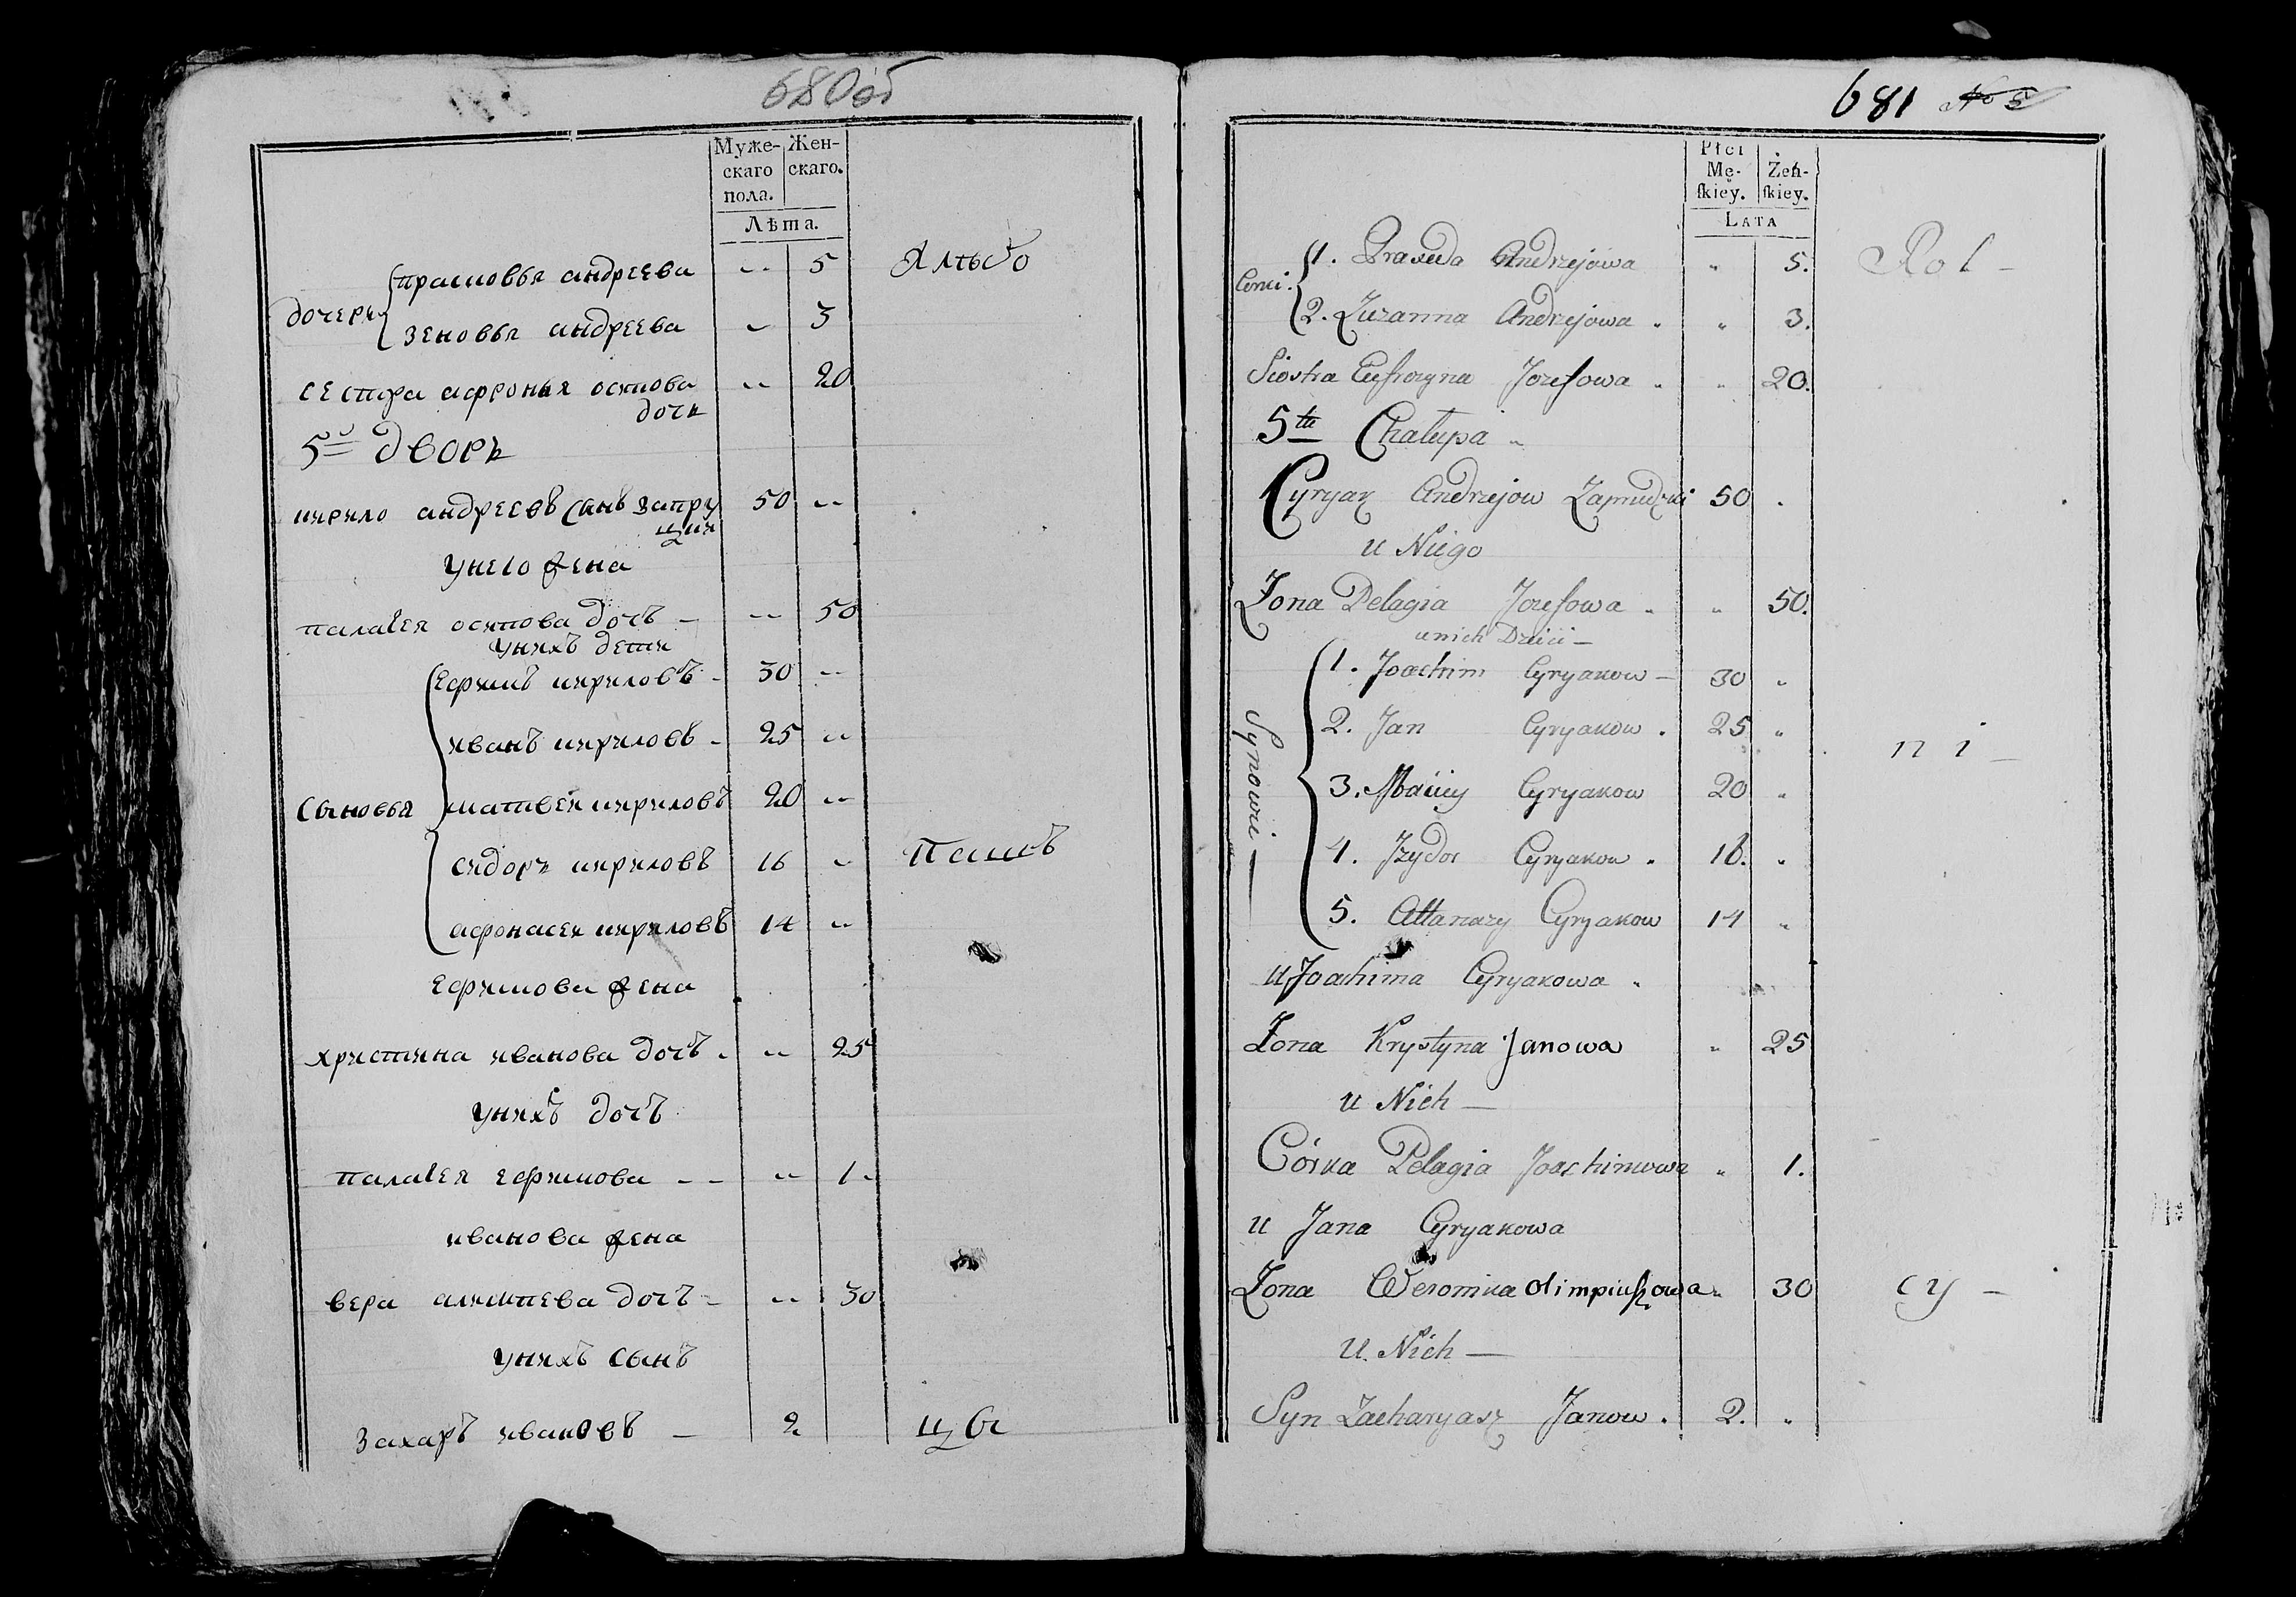 680об
Муже-
скаго
пола.
Жен-
скаго.
Лѣта.
дочери
прасковья андреева -- 5
зеновья андреева -- 3
сестра афронья осипова -- 20
дочь
5й дворъ
кирило андреевъ сынъ запру 50 --
цки
унего жена
палагея осипова дочь -- 50
унихъ дети
Сыновья
ефимъ кириловъ - 30 --
иванъ кириловъ - 25 --
матвей кириловъ 20 --
сидоръ кириловъ 16 --
афонасей кириловъ 14 --
ефимова жена
христина иванова дочь -- 25
унихъ дочь
палагея ефимова - - -- 1
иванова жена
вера алимпева дочь -- 30
унихъ сынъ
захаръ ивановъ - 2
Пашъ
цы
681 No 5
Płci
Mę-
skiey.
Żeń-
skiey.
LATA
Corki.
1. Praxeda Andrzejowa " 5.
2. Zuzanna Andrzejowa " 3.
Siostra Eufrozyna Jozefowa " 20.
5te Chałupa
Cyryak Andrzejow 50
u Niego
Żona Pelagia Jozefowa " 50.
u nich Dzieci
Synowie
1. Joachim Cyryakow 30 "
2. Jan Cyryakow 25 "
3. Maciey Cyryakow 20 "
4. Jzydor Cyryakow 16. "
5. Attanazy Cyryakow 14 "
u Joachima Cyryakowa
Żona Krystyna Janowa " 25
u Nich
Córka Pelagia Joachimowa " 1.
u Jana Cyryakowa
Żona Weronika Olimpiuszowa " 30
u Nich
Syn Zacharyasz Janow 2. "
Rol-
ni-
cy-